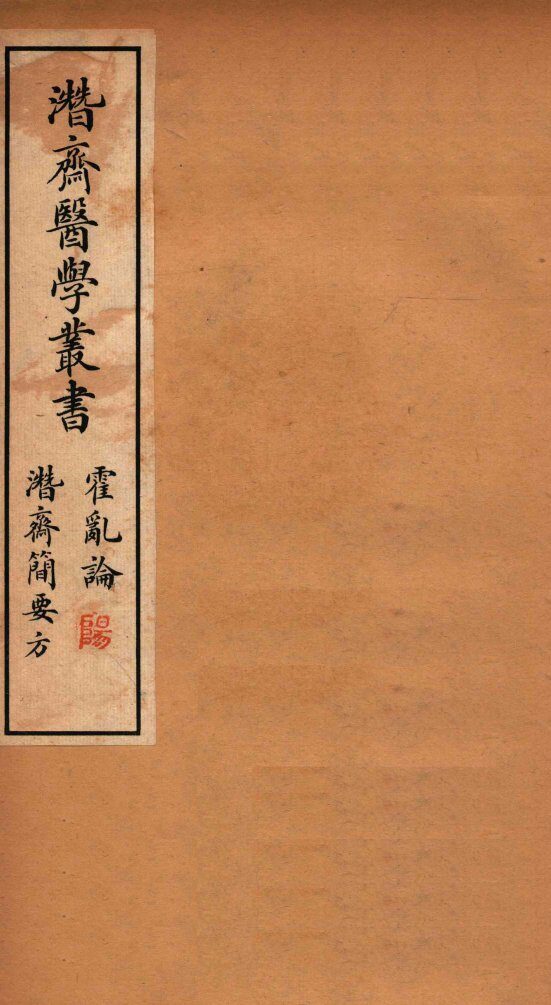 潛齋醫學叢書
霍亂論
陽
潛齋簡要方